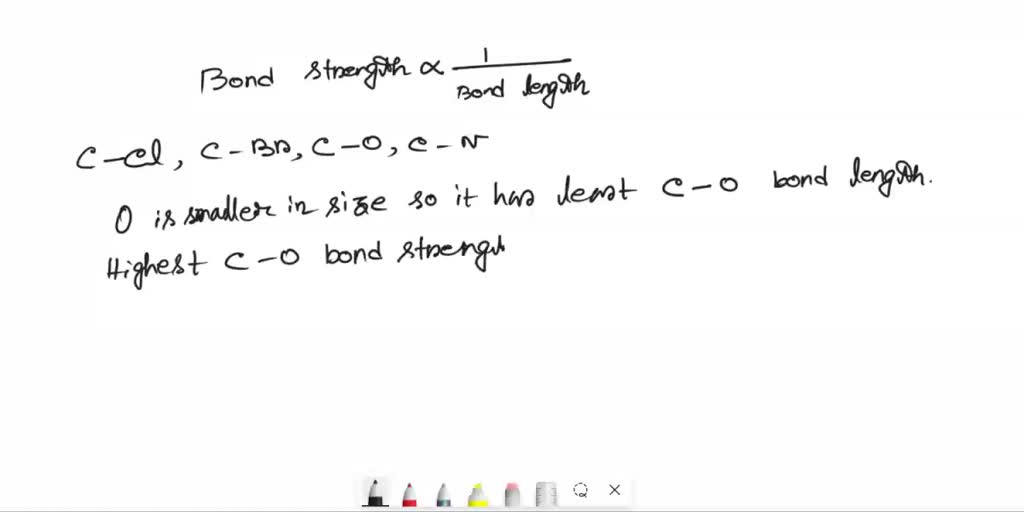 Bond strength ∝ 1 / Bond length
C-Cl, C-Br, C-O, C-N
O is smaller in size so it has least C-O bond length.
Highest C-O bond strengt